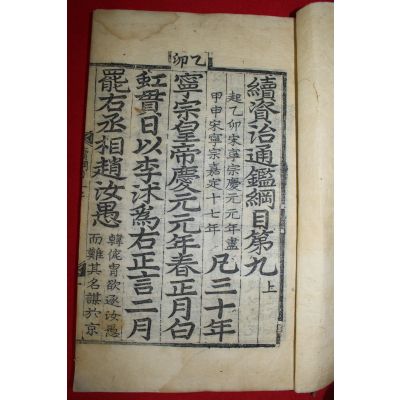 乙卯
續資治通鑑綱目第九上
起乙卯宋寧宗慶元元年盡
甲申宋寧宗嘉定十七年
凡三十年
寧宗皇帝慶元元年春正月白
虹貫日以李沐爲右正言二月
罷右丞相趙汝愚
韓侂胄欲逐汝愚
而難其名謀於京